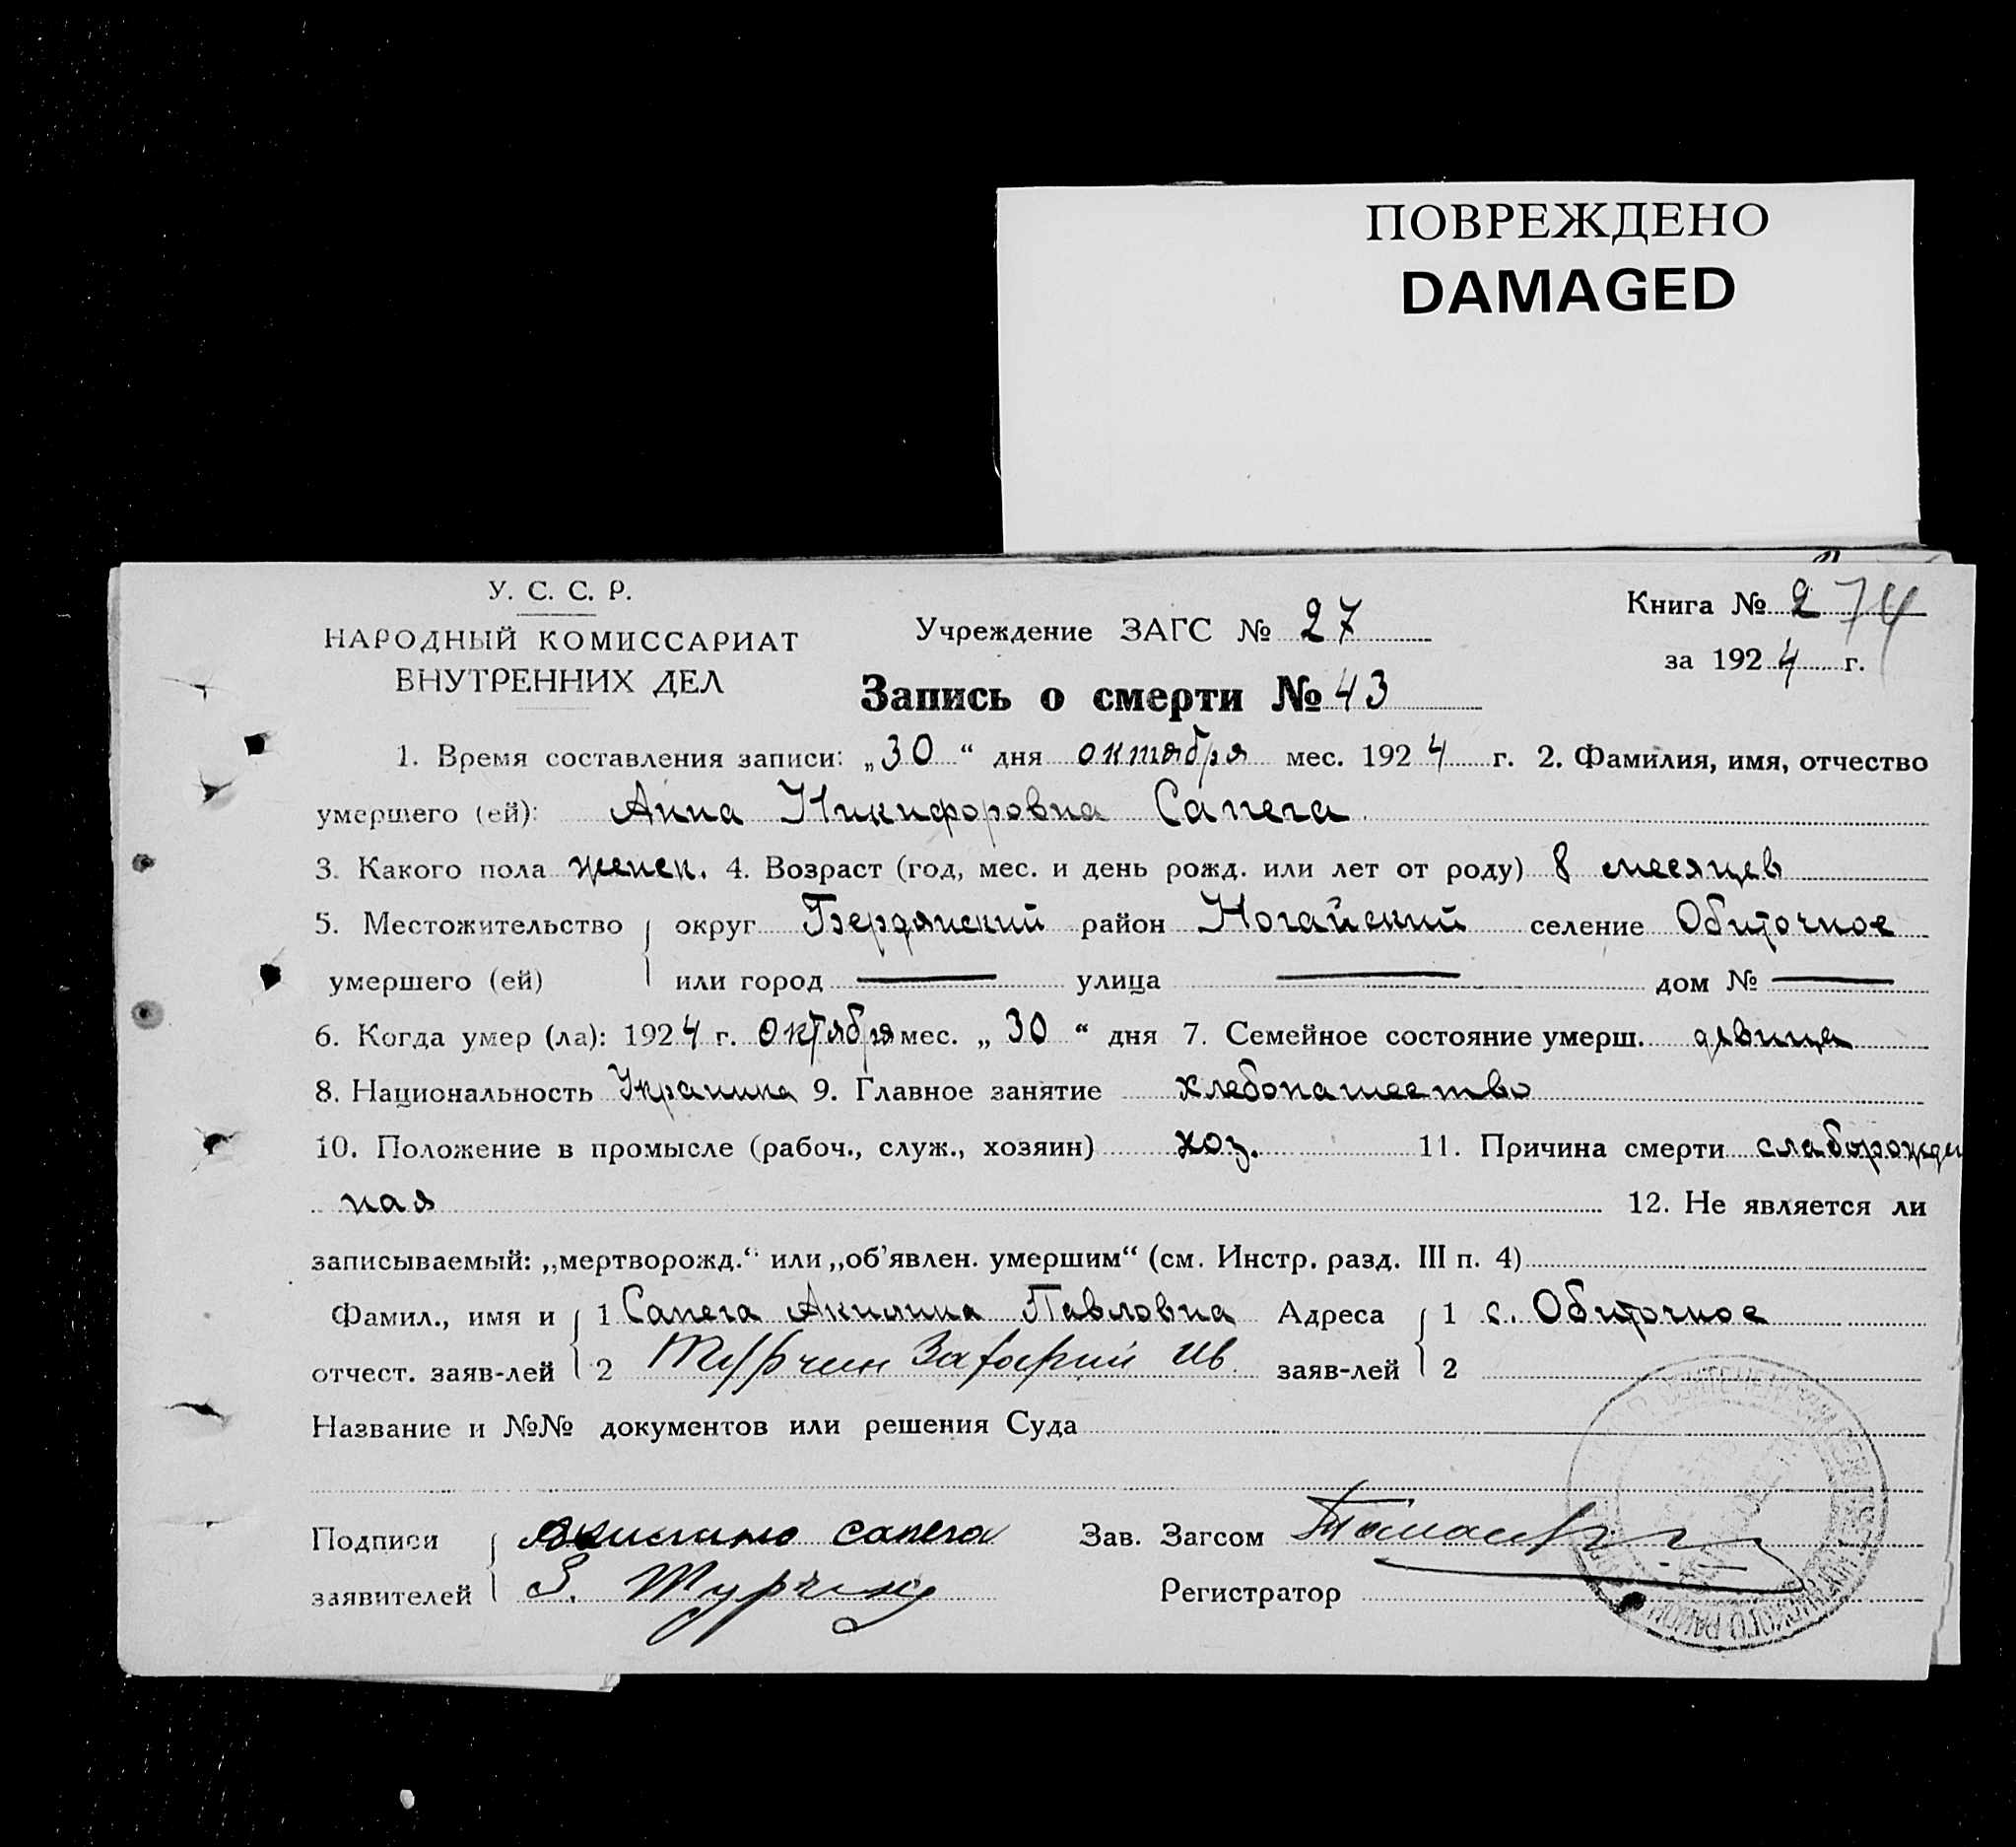 ПОВРЕЖДЕНО
DAMAGED
У. С. С. Р.
НАРОДНЫЙ КОМИССАРИАТ
ВНУТРЕННИХ ДЕЛ
Учреждение ЗАГС № 27
Книга № 2 74
за 1924 г.
Запись о смерти № 43
1. Время составления записи: „30“ дня октября мес. 1924 г. 2. Фамилия, имя, отчество
умершего (ей): Анна Никифоровна Сапега
3. Какого пола женск. 4. Возраст (год, мес. и день рожд. или лет от роду) 8 месяцев
5. Местожительство округ Бердянский район Ногайский селение Обиточное
умершего (ей) или город — улица — дом № —
6. Когда умер (ла): 1924 г. октября мес. „30“ дня 7. Семейное состояние умерш. девица
8. Национальность Украинка 9. Главное занятие хлебопашество
10. Положение в промысле (рабоч., служ., хозяин) хоз. 11. Причина смерти слаборожден
ная 12. Не является ли
записываемый: „мертворожд.“ или „об'явлен. умершим“ (см. Инстр. разд. III п. 4)
Фамил., имя и 1 Сапега Акилина Павловна Адреса 1 с. Обиточное
отчест. заяв-лей 2 Турчин Захарий Ив. заяв-лей 2
Название и №№ документов или решения Суда
Подписи Акилина сапега Зав. Загсом
заявителей З. Турчин Регистратор